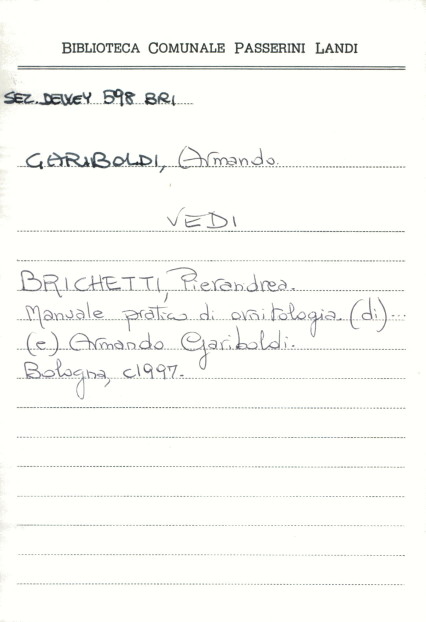 BIBLIOTECA COMUNALE PASSERINI LANDI
SEZ. DEWEY 598 BRI
GARIBOLDI, Armando
VEDI
BRICHETTI, Pierandrea.
Manuale pratico di ornitologia. (di)...
(e) Armando Gariboldi.
Bologna, c1997.